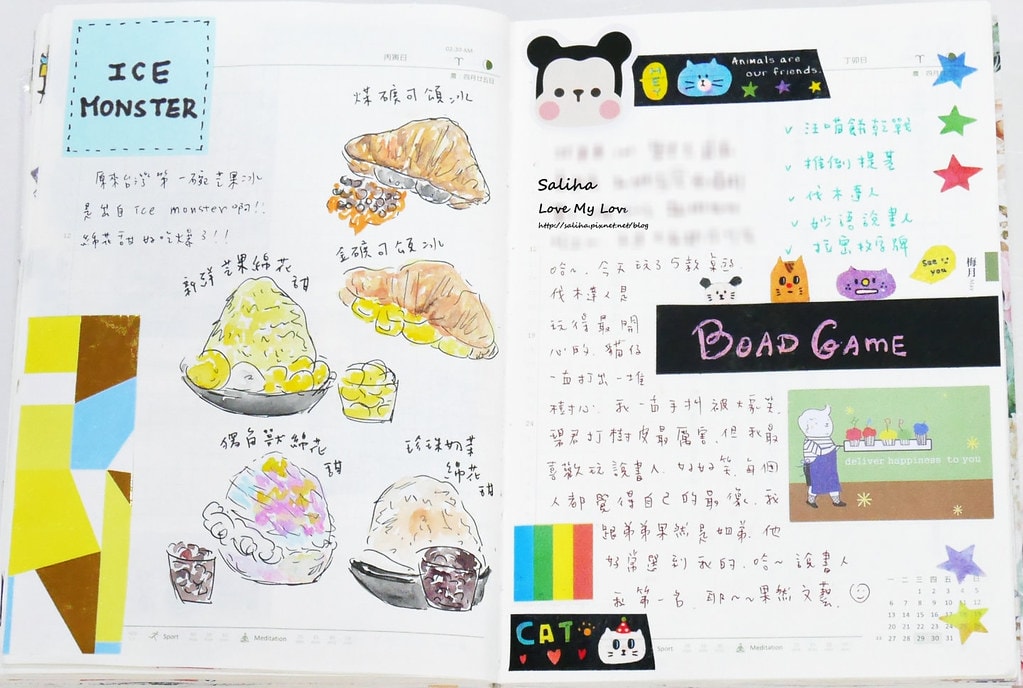 ICE
MONSTER
原來台灣第一碗芒果冰
是出自Ice monster啊!!
綿花甜好吃爆了!!
丙寅日
煤礦可頌冰
金礦可頌冰
新鮮芒果綿花
甜
偶自獸綿花
甜
珍珠奶茶
綿花
甜
Sport
Meditation
Animals are
our friends.
丁卯日
✓ 汪喵餅乾戰
✓ 推倒提基
✓ 伐木達人
✓ 妙語說書人
✓ 拉密數字牌
Saliha
Love My Love
http://saliha.pixnet.net/blog
See
you
梅月
哈~,今天玩了5款桌遊
伐木達人是
玩得最開
心的,貓仔
一直打出一堆
樹心,我一直手抖被大家笑,
君打樹皮最厲害,但我最
喜歡玩說書人,好好笑,每個
人都覺得自己的最像,我
跟弟弟果然是姐弟,他
好常選到我的,哈~說書人
我第一名,耶~~果然文藝
BOAD GAME
deliver happiness to you
CAT
一 二 三 四 五 六 日
Sport
Meditation